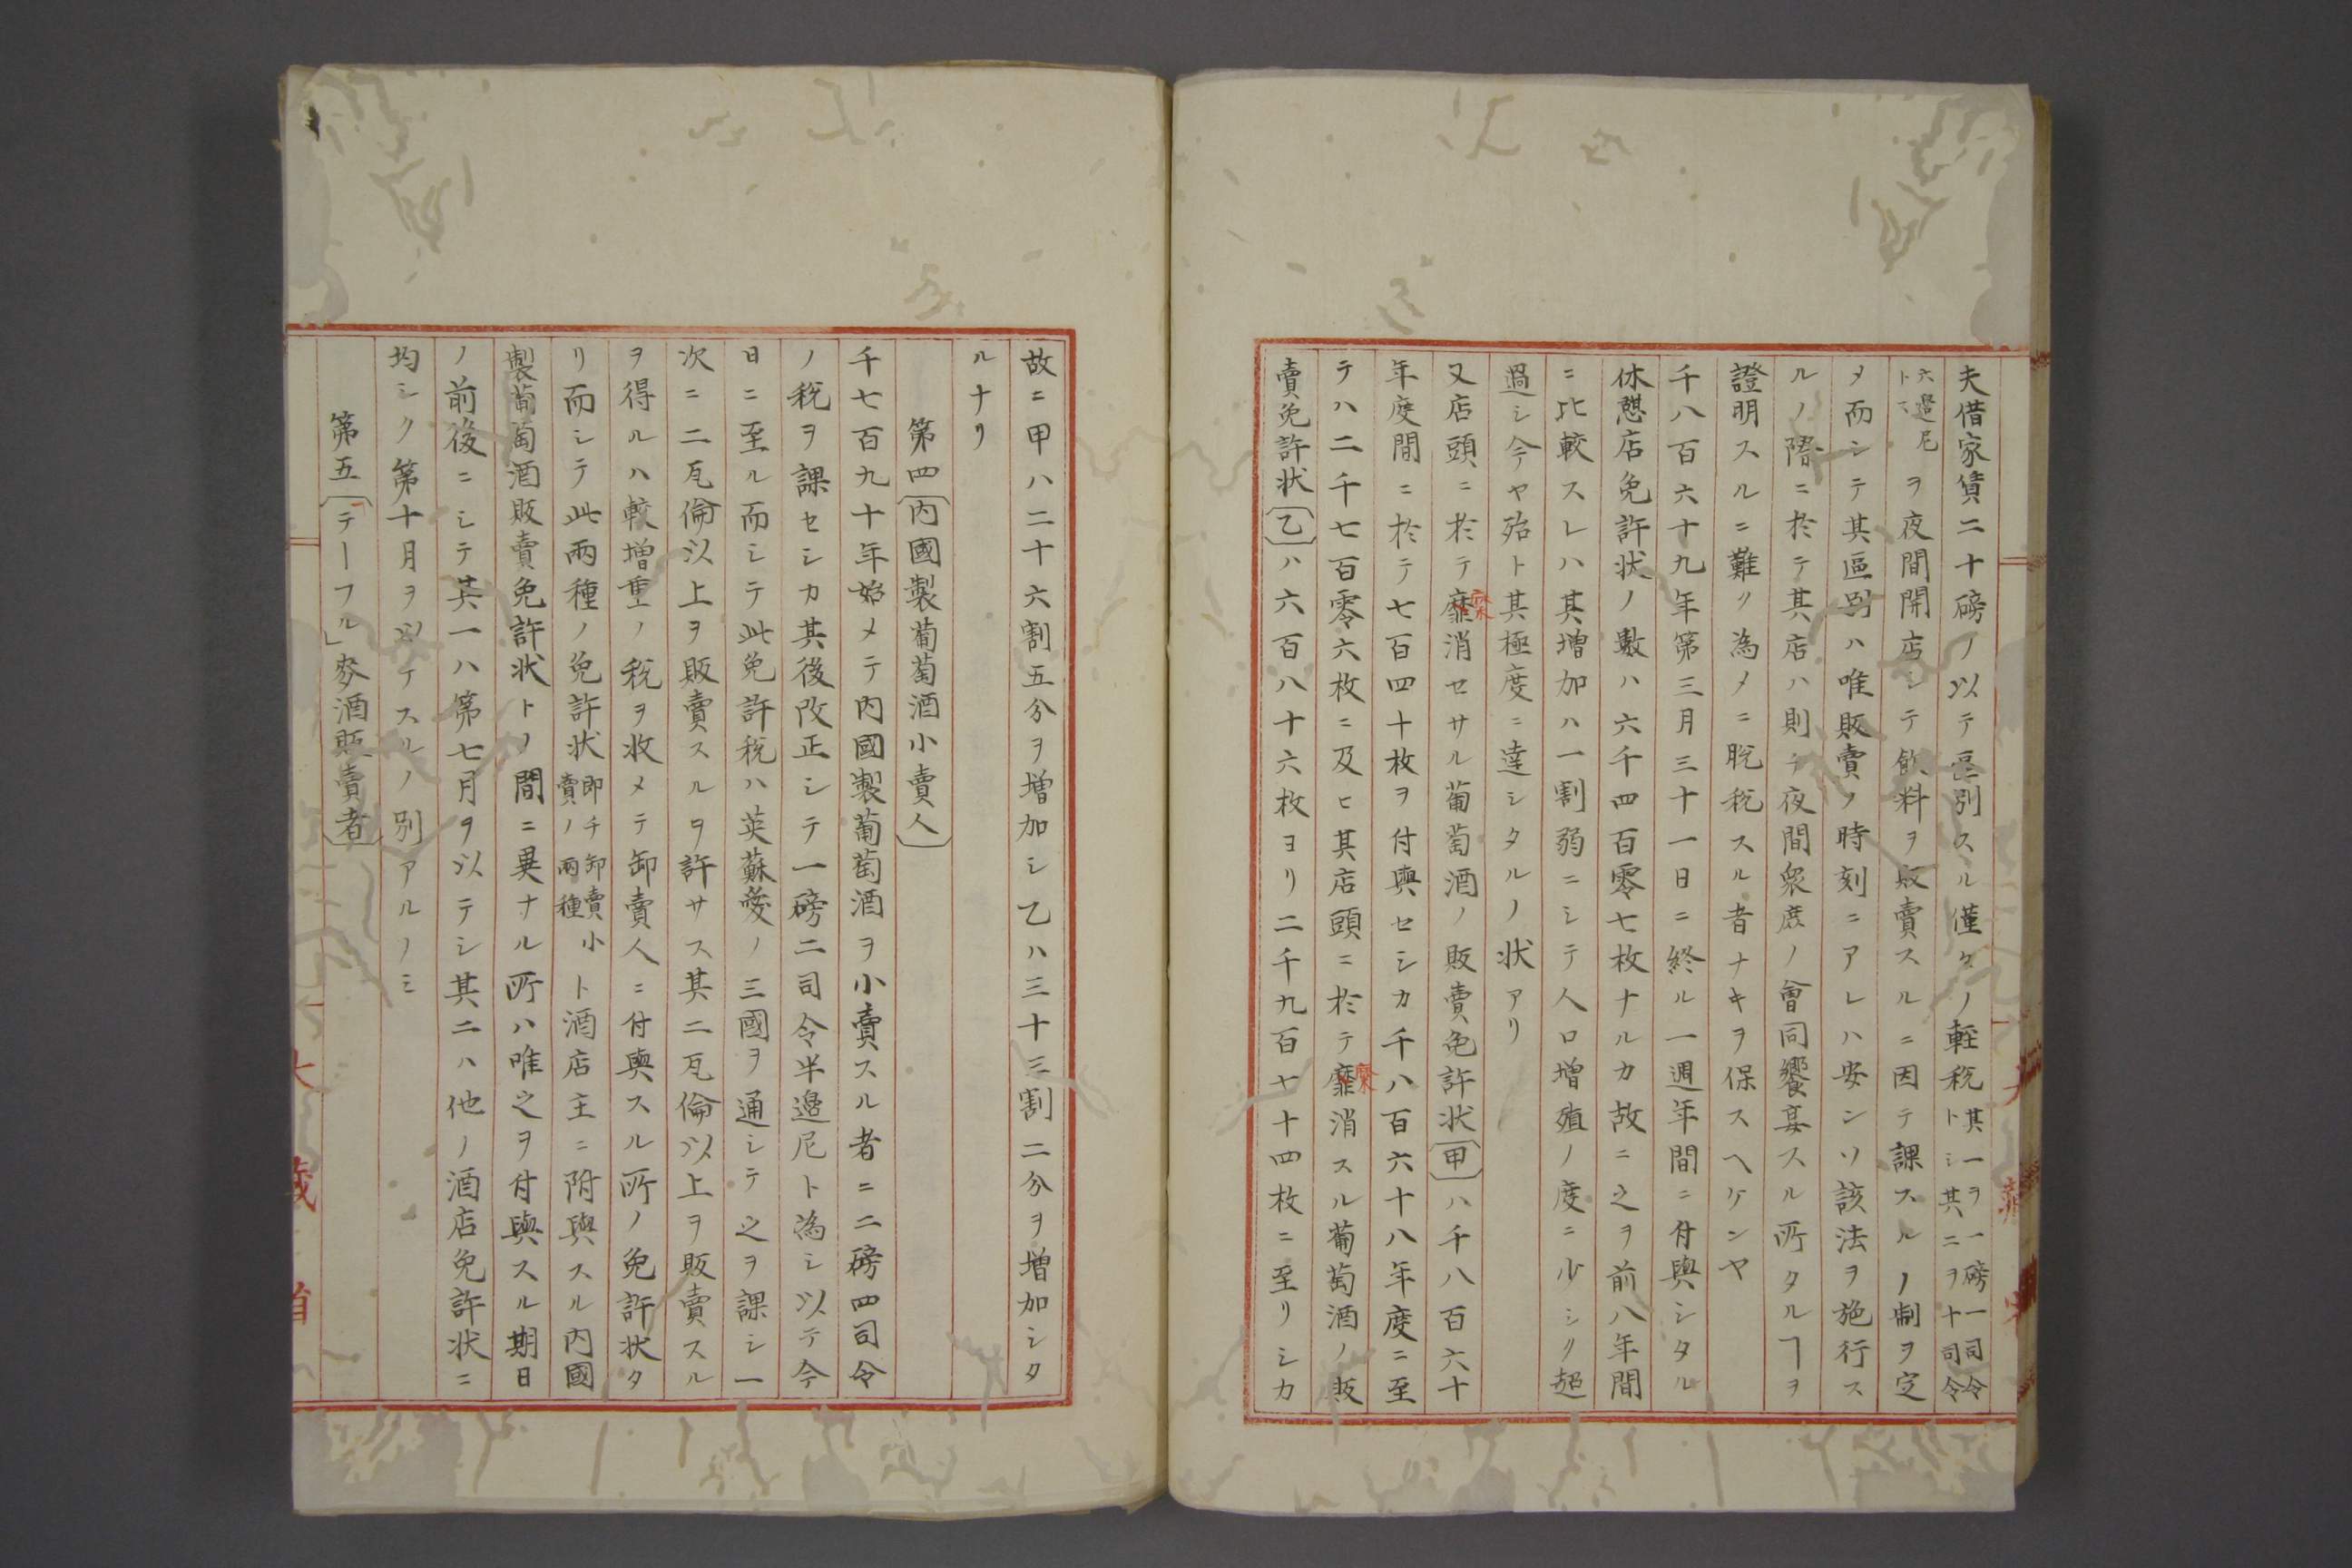 夫借家賃二十磅ノ以テ區別スル僅々ノ軽税其一ヲ一磅一司令トシ其二ヲ十司令
六邉尼トスヲ夜間開店シテ飲料ヲ販賣スルニ因テ課スルノ制ヲ定
メ而シテ其區別ハ唯販賣ノ時刻ニアレハ安ンソ該法ヲ施行ス
ルノ際ニ於テ其店ハ則チ夜間衆庶ノ會同饗宴スル所タルヿヲ
證明スルニ難ク為メニ脱税スル者ナキヲ保スヘケンヤ
千八百六十九年第三月三十一日ニ終ル一週年間ニ付與シタル
休憩店免許状ノ數ハ六千四百零七枚ナルカ故ニ之ヲ前八年間
ニ比較スレハ其增加ハ一割弱ニシテ人口增殖ノ度ニ少シク超
過シ今ヤ殆ト其極度ニ達シタルノ状アリ
又店頭ニ於テ糜消セサル葡萄酒ノ販賣免許状〔甲〕ハ千八百六十
年度間ニ於テ七百四十枚ヲ付與セシカ千八百六十八年度ニ至
テハ二千七百零六枚ニ及ヒ其店頭ニ於テ糜消スル葡萄酒ノ販
賣免許状〔乙〕ハ六百八十六枚ヨリ二千九百七十四枚ニ至リシカ
故ニ甲ハ二十六割五分ヲ増加シ乙ハ三十三割二分ヲ増加シタ
ルナリ
第四〔内國製葡萄酒小賣人〕
千七百九十年始メテ内國製葡萄酒ヲ小賣スル者ニ二磅四司令
ノ税ヲ課セシカ其後改正シテ一磅二司令半邉尼ト為シ以テ今
日ニ至ル而シテ此免許税ハ英蘇愛ノ三國ヲ通シテ之ヲ課シ一
次ニ二瓦倫以上ヲ販賣スルヲ許サス其二瓦倫以上ヲ販賣スル
ヲ得ルハ較増重ノ税ヲ收メテ卸賣人ニ付與スル所ノ免許状タ
リ而シテ此両種ノ免許状即チ卸賣小賣ノ両種ト酒店主ニ附與スル内國
製葡萄酒販賣免許状トノ間ニ異ナル所ハ唯之ヲ付與スル期日
ノ前後ニシテ其一ハ第七月ヲ以テシ其二ハ他ノ酒店免許状ニ
均シク第十月ヲ以テスルノ別アルノミ
第五〔「テーフル」麥酒販賣者〕
大藏省